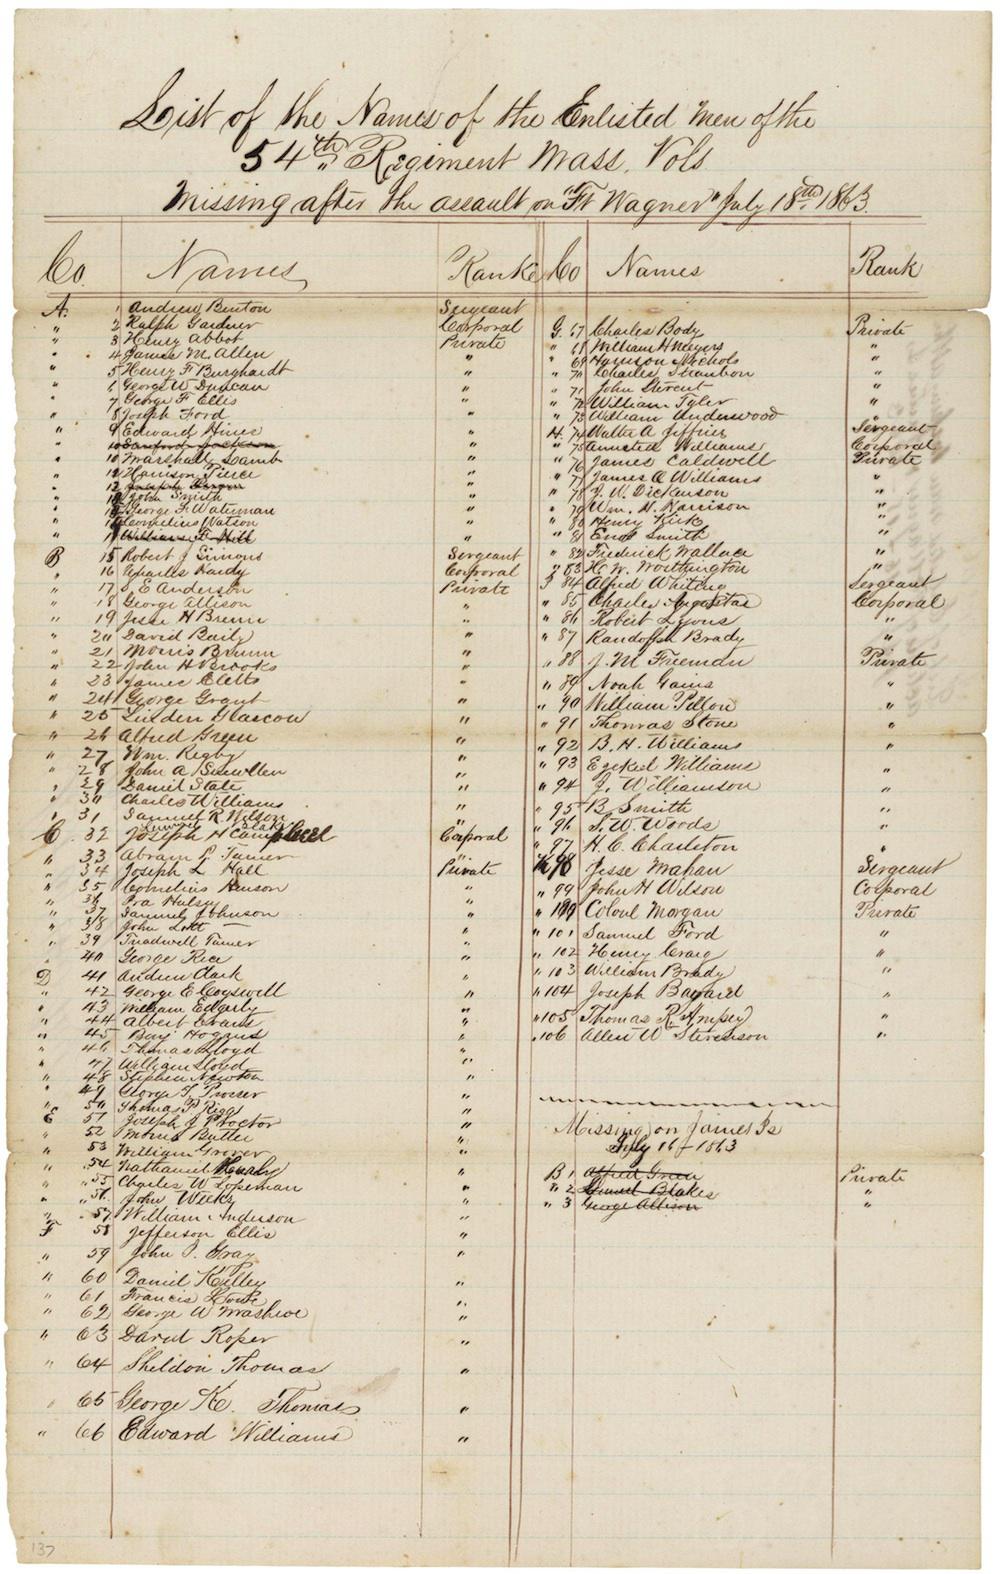 List of the Names of the Enlisted Men of the
54th Regiment Mass. Vols.
Missing after the assault on "Ft Wagner" July 18th 1863.
Co. Names Rank
A. 1 Andrew Benton Sergeant
" 2 Ralph Gardner Corporal
" 3 Henry Abbot Private
" 4 James M. Allen "
" 5 Henry F Burghardt "
" 6 George W Duncan "
" 7 George F Ellis "
" 8 Joseph Ford "
" 9 Edward Hines "
" 10 Sanford Jackson
" 10 Marshall Lamb "
" 11 Harrison Pierce "
" 12 Joseph
" John Smith "
" George F. Waterman "
" Cornelius Watson "
" William F. Hill "
B 15 Robert J Simons Sergeant
" 16 Charles Hardy Corporal
" 17 J. E Anderson Private
" 18 George Allison "
" 19 Jesse H Brown "
" 20 David Baily "
" 21 Morris Brown "
" 22 John H Brooks "
" 23 James Eletts "
" 24 George Grant "
" 25 Linden Glascow "
" 26 Alfred Green "
" 27 Wm. Rigby "
" 28 John A "
" 29 Daniel State "
" 30 Charles Williams "
" 31 Samuel R Wilson "
Blake
C. 32 Joseph H Campbell Corporal
" 33 Abram P. Turner "
" 34 Joseph L Hall Private
" 35 Cornelius Henson "
" 36 Ira Hulsey "
" 37 Samuel Johnson "
" 38 John Lott "
" 39 Treadwell Turner "
" 40 George Rice "
D 41 Andrew Clark
" 42 George E Cogswell "
" 43 William Edgerly "
" 44 Albert Evans "
" 45 Benj Hogans "
" 46 Thomas Lloyd "
" 47 William Lloyd "
" 48 Stephen Newton "
" 49 George T. Prosser "
" 50 Thomas P Riggs "
E 51 Joseph J Proctor "
" 52 Morris Butler "
" 53 William Grover "
" 54 Nathaniel Hurley "
" 55 Charles W Lopeman "
" 56 John Weeks "
" 57 William Anderson "
F 58 Jefferson Ellis "
" 59 John J. Gray "
" 60 Daniel Kelley "
" 61 Francis "
" 62 George W "
" 63 David Roper "
" 64 Sheldon Thomas "
" 65 George K. Thomas "
" 66 Edward Williams "
Co Names Rank
G. 67 Charles Body Private
" 68 William H Meyers "
" 69 Harrison Nichols "
" 70 Charles Straubon "
" 71 John Stevent "
" 72 William Tyler "
" 73 William Underwood
H. 74 Walter A Jeffries Sergeant
" 75 Williams Corporal
" 76 James Caldwell Private
" 77 James O Williams
" 78 J. W. Dickenson "
" 79 Wm. H. Harrison "
" 80 Henry Kirk "
" 81 Enos Smith "
" 82 Frederick Wallace "
" 83 H. W. Worthington "
I 84 Alfred Whiting Sergeant
" 85 Charles Augustas Corporal
" 86 Robert Lyons "
" 87 Randolph Brady "
" 88 J. M Freeman Private
" 89 Noah Gains "
" 90 William Pillon "
" 91 Thomas Stone "
" 92 B. H. Williams "
" 93 Ezekel Williams "
" 94 J. Williamson "
" 95 B Smith "
" 96 S. W. Woods "
" 97 H. C. Charlston "
K 98 Jesse Mahan Sergeant
" 99 John H Wilson Corporal
" 100 Colonel Morgan Private
" 101 Samuel Ford "
" 102 Henry Craig "
" 103 William Brady "
" 104 Joseph Bayard "
" 105 Thomas R Ampsey "
" 106 Allen W Stevenson "
Missing on James Is
July 16 - 1863
B 1 Alfred Green Private
" 2 Samuel Blakes "
" 3 George Allison "
137